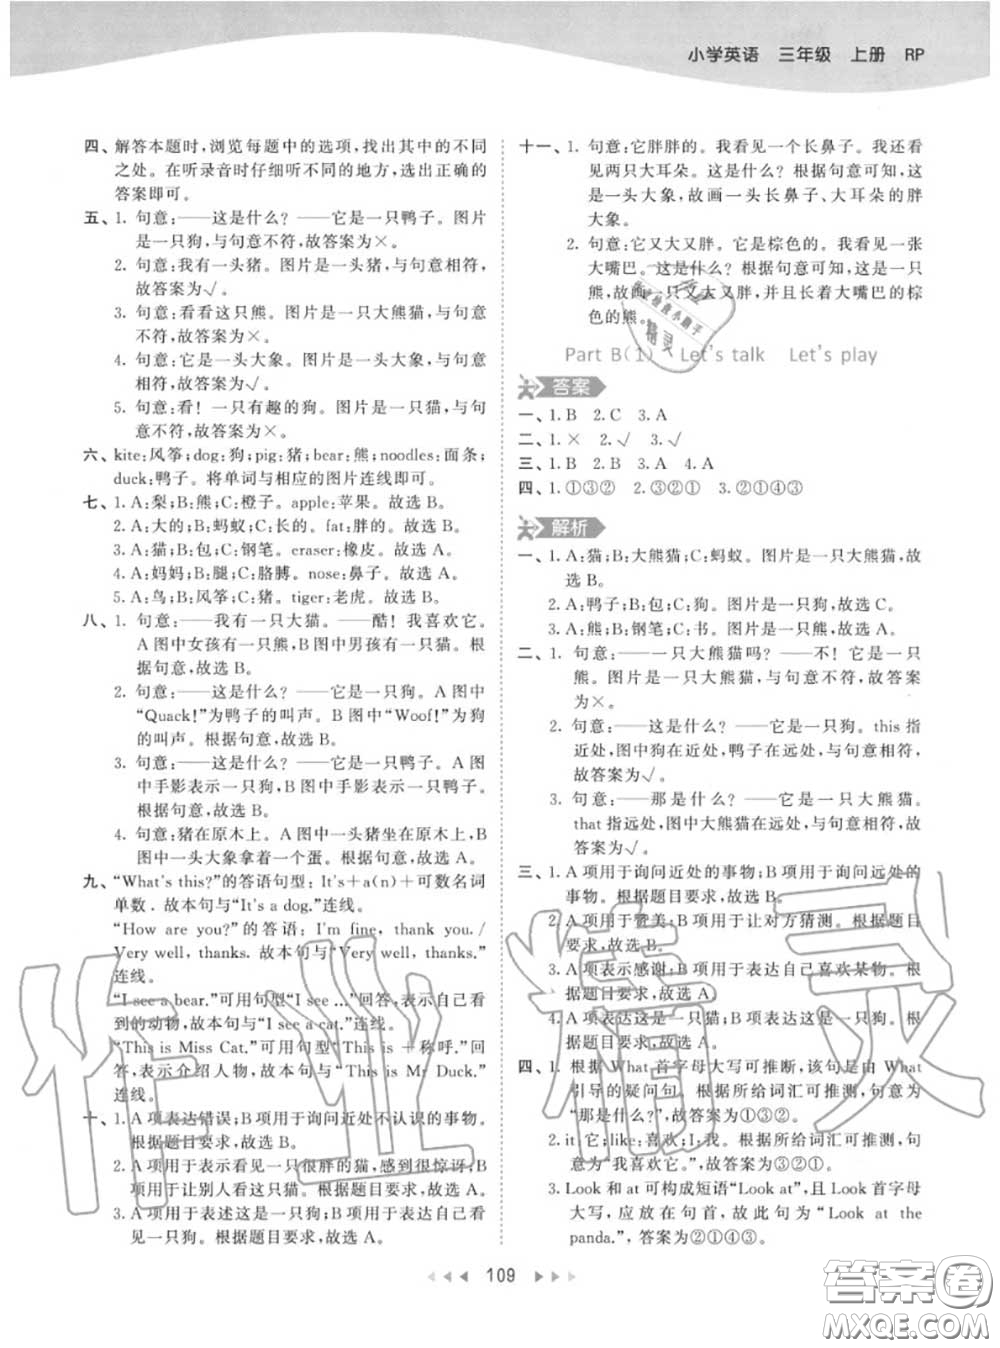 小学英语 三年级 上册 RP
四、解答本题时,浏览每题中的选项,找出其中的不同
之处。在听录音时仔细听不同的地方,选出正确的
答案即可。
五、1. 句意:——这是什么? ——它是一只鸭子。图片
是一只狗,与句意不符,故答案为×。
2. 句意:我有一头猪。图片是一头猪,与句意相符,
故答案为√。
3. 句意:看看这只熊。图片是一只大熊猫,与句意
不符,故答案为×。
4. 句意:它是一头大象。图片是一头大象,与句意
相符,故答案为√。
5. 句意:看! 一只有趣的狗。图片是一只猫,与句
意不符,故答案为×。
六、kite:风筝;dog:狗;pig:猪;bear:熊;noodles:面条;
duck:鸭子。将单词与相应的图片连线即可。
七、1. A:梨;B:熊;C:橙子。apple:苹果。故选 B。
2. A:大的;B:蚂蚁;C:长的。fat:胖的。故选 B。
3. A:猫;B:包;C:钢笔。eraser:橡皮。故选 A。
4. A:妈妈;B:腿;C:胳膊。nose:鼻子。故选 A。
5. A:鸟;B:风筝;C:猪。tiger:老虎。故选 B。
八、1. 句意:——我有一只大猫。——酷! 我喜欢它。
A 图中女孩有一只熊,B 图中男孩有一只猫。根
据句意,故选 B。
2. 句意:——这是什么? ——它是一只狗。A 图中
“Quack!”为鸭子的叫声。B 图中“Woof!”为狗
的叫声。根据句意,故选 B。
3. 句意:——这是什么? ——它是一只鸭子。A 图
中手影表示一只狗,B 图中手影表示一只鸭子。
根据句意,故选 B。
4. 句意:猪在原木上。A 图中一头猪坐在原木上,B
图中一头大象拿着一个蛋。根据句意,故选 A。
九、“What's this?”的答语句型:It's+a(n)+可数名词
单数. 故本句与“It's a dog.”连线。
“How are you?”的答语:I'm fine, thank you. /
Very well, thanks. 故本句与“Very well, thanks.”
连线。
“I see a bear.”可用句型“I see ...”回答,表示自己看
到的动物,故本句与“I see a cat.”连线。
“This is Miss Cat.”可用句型“This is +称呼.”回
答,表示介绍人物,故本句与“This is Mr Duck.”
连线。
十、1. A 项表达错误;B 项用于询问近处不认识的事物。
根据题目要求,故选 B。
2. A 项用于表示看见一只很胖的猫,感到很惊讶;B
项用于让别人看这只猫。根据题目要求,故选 A。
3. A 项用于表述这是一只狗;B 项用于表示自己看
见一只狗。根据题目要求,故选 A。
十一、1. 句意:它胖胖的。我看见一个长鼻子。我还看
见两只大耳朵。这是什么? 根据句意可知,这
是一头大象,故画一头长鼻子、大耳朵的胖
大象。
2. 句意:它又大又胖。它是棕色的。我看见一张
大嘴巴。这是什么? 根据句意可知,这是一只
熊,故画一只又大又胖,并且长着大嘴巴的棕
色的熊。
Part B(1) Let's talk Let's play
答案
一、1. B 2. C 3. A
二、1. × 2. √ 3. √
三、1. B 2. B 3. A 4. A
四、1. ①③② 2. ③②① 3. ②①④③
解析
一、1. A:猫;B:大熊猫;C:蚂蚁。图片是一只大熊猫,故
选 B。
2. A:鸭子;B:包;C:狗。图片是一只狗,故选 C。
3. A:熊;B:钢笔;C:书。图片是一只熊,故选 A。
二、1. 句意:——一只大熊猫吗? ——不! 它是一只
熊。图片是一只大熊猫,与句意不符,故答案
为×。
2. 句意:——这是什么? ——它是一只狗。this 指
近处,图中狗在近处,鸭子在远处,与句意相符,
故答案为√。
3. 句意:——那是什么? ——它是一只大熊猫。
that 指远处,图中大熊猫在远处,与句意相符,故
答案为√。
三、1. A 项用于询问近处的事物;B 项用于询问远处的
事物。根据题目要求,故选 B。
2. A 项用于赞美;B 项用于让对方猜测。根据题目
要求,故选 B。
3. A 项表示感谢;B 项用于表达自己喜欢某物。根
据题目要求,故选 A。
4. A 项表达这是一只猫;B 项表达这是一只狗。根
据题目要求,故选 A。
四、1. 根据 What 首字母大写可推断,该句是由 What
引导的疑问句。根据所给词汇可推测,句意为
“那是什么?”,故答案为①③②。
2. it:它;like:喜欢;I:我。根据所给词汇可推测,句
意为“我喜欢它。”,故答案为③②①。
3. Look 和 at 可构成短语“Look at”,且 Look 首字母
大写,应放在句首,故此句为“Look at the
panda.”,答案为②①④③。
109
作业精灵
答案卷
MXQE.COM